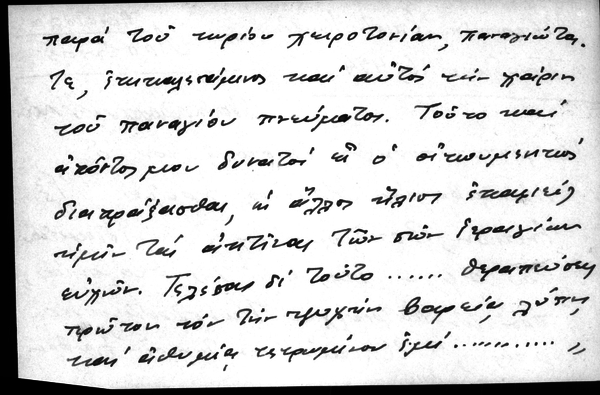 παρά τοῦ κυρίου χειροτονίαν, παναγιώτα-
τε, ἐπικαλεσάμενος καί αὐτός τήν χάριν
τοῦ παναγίου πνεύματος. Τοῦτο καί
ἀπόντος μου δυνατός εἶ ὁ οἰκουμενικός
διαπράξασθαι, ὡς ἄλλος ἥλιος ἐπαφιείς
ἡμῖν τάς ἀκτῖνας τῶν σῶν ἱεραγίων
εὐχῶν. Τελέσας δέ τοῦτο ...... θεραπεύσεις
πρῶτον τόν τήν ψυχήν βαρείᾳ λύπῃ
καί ἀθυμίᾳ τετρωμένον ἐμέ ............ „